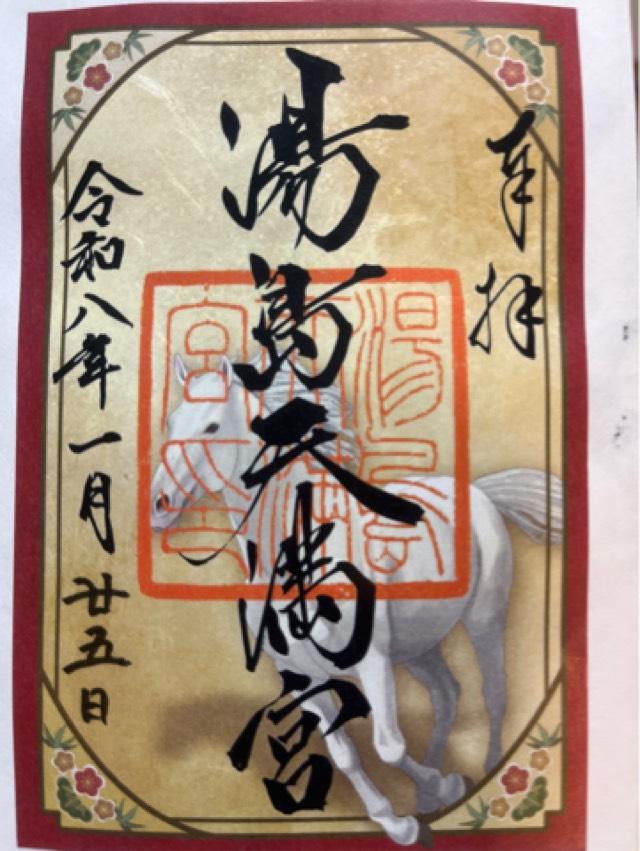 奉拝
湯島天満宮
令和八年一月廿五日